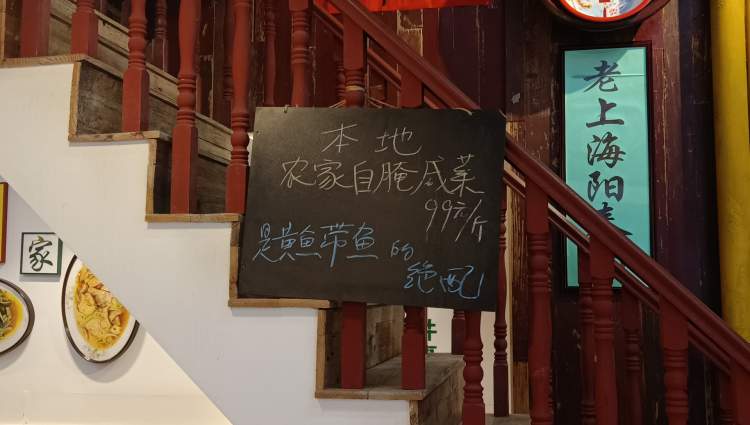 本地
农家自腌咸菜
99元/斤
是黄鱼带鱼的
绝配
老上海阳春
家